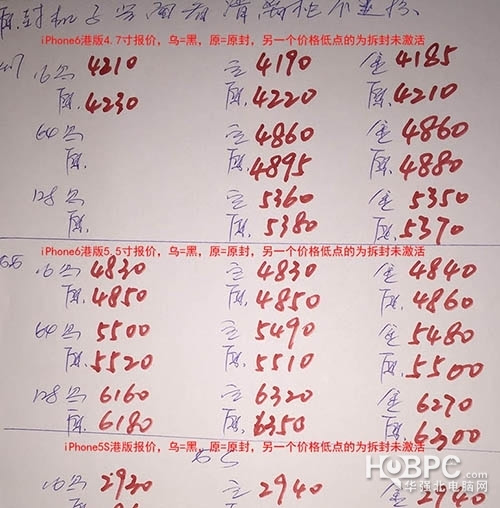 iPhone6港版4.7寸报价，乌=黑，原=原封，另一个价格低点的为拆封未激活
4.7 16乌 4210 主 4190 金 4185
原. 4230 原. 4220 原. 4210
64乌 主 4860 金 4860
原. 原. 4895 原. 4880
128乌 主 5360 金 5350
原. 原. 5380 原. 5370
iPhone6港版5.5寸报价，乌=黑，原=原封，另一个价格低点的为拆封未激活
5.5 16乌 4830 主 4830 金 4840
原. 4850 原. 4850 原. 4860
64乌 5500 主 5490 金 5480
原. 5520 原. 5510 原. 5500
128乌 6160 主 6320 金 6270
原. 6180 原. 6350 原. 6300
iPhone5S港版报价，乌=黑，原=原封，另一个价格低点的为拆封未激活
16乌 2930 主 2940 金 2940
HOBPC.com
华强北电脑网